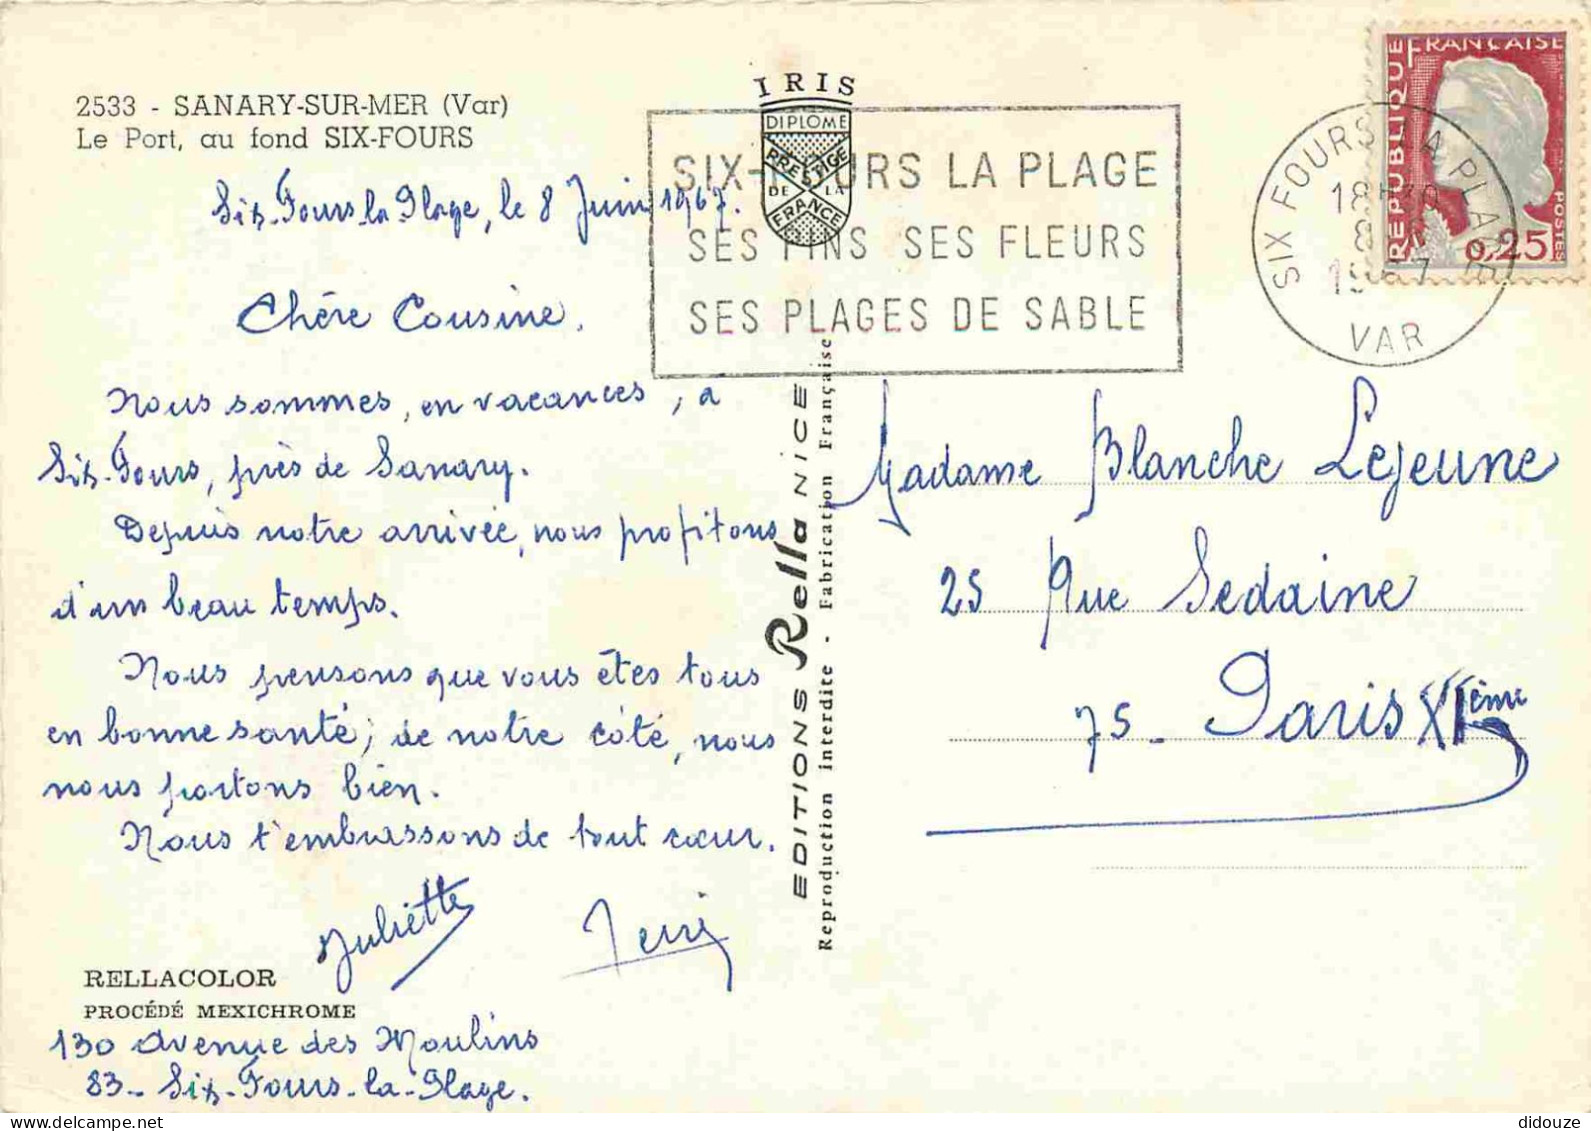 2533 - SANARY-SUR-MER (Var)
Le Port, au fond SIX-FOURS
Six-Fours la Plage, le 8 Juin 1967.
Chère Cousine,
Nous sommes, en vacances, a
Six-Fours, près de Sanary.
Depuis notre arrivée, nous profitons
d'un beau temps.
Nous pensons que vous êtes tous
en bonne santé; de notre côté, nous
nous portons bien.
Nous t'embrassons de tout cœur.
Juliette
RELLACOLOR
PROCÉDÉ MEXICHROME
130 Avenue des Moulins
83 - Six-Fours-la-Plage.
IRIS
DIPLÔME
PRESTIGE
DE LA
FRANCE
SIX-FOURS LA PLAGE
SES PINS SES FLEURS
SES PLAGES DE SABLE
EDITIONS Rella NICE
Reproduction interdite - Fabrication Française
SIX FOURS LA PLAGE
18H30
8
1967
VAR
REPUBLIQUE FRANÇAISE
0,25
POSTES
Madame Blanche Lejeune
25 Rue Sedaine
75 - Paris XIème
didouze